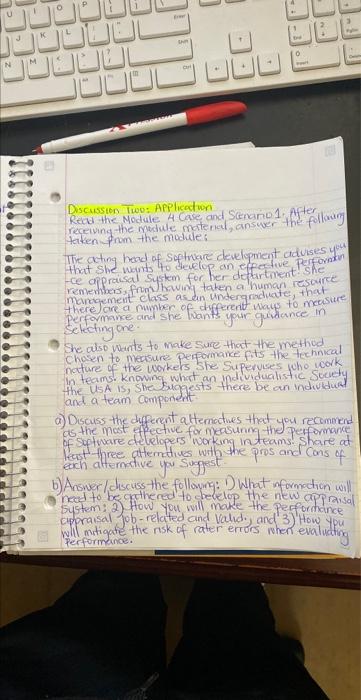 Discussion Two: Application
Read the Module 4 Case, and Scenario 1. After
receiving the module material, answer the following
taken from the module:
The acting head of Software development advises you
that she wants to develop an effective performan
-ce appraisal system for her department. She
remembers, from having taken a human resource
management class as an undergraduate, that
there are a number of different ways to measure
performance and she wants your guidance in
selecting one.
She also wants to make sure that the method
chosen to measure performance fits the technical
nature of the workers she supervises who work
in teams. Knowing what an individualistic society
the USA is, she suggests there be an individual
and a team component.
a) Discuss the different alternatives that you recommend
as the most effective for measuring the performance
of software developers working in teams. Share at
least three alternatives with the pros and cons of
each alternative you suggest.
b) Answer/discuss the following: 1) What information will
need to be gathered to develop the new appraisal
system; 2) How you will make the performance
appraisal job-related and valid; and 3) How you
will mitigate the risk of rater errors when evaluating
performance.